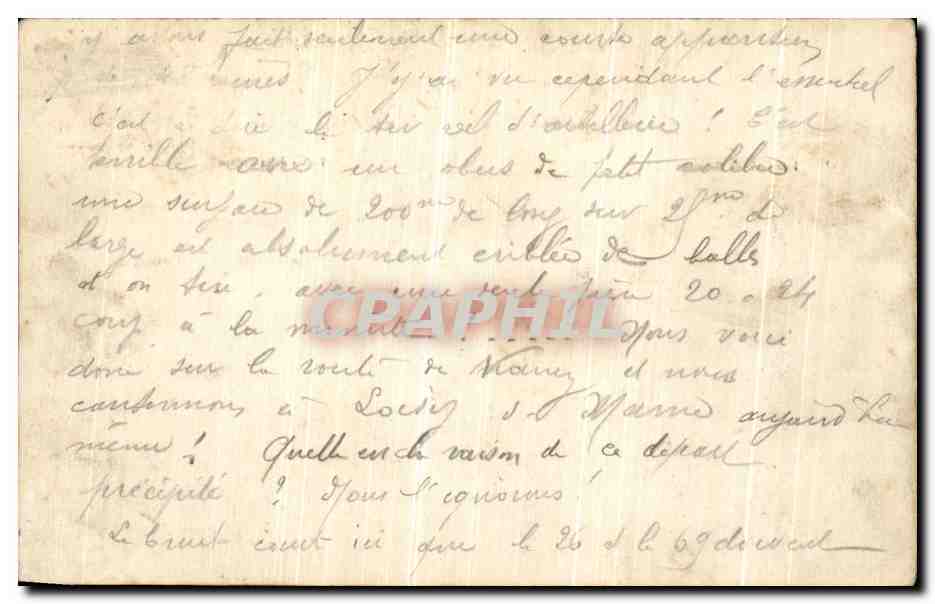 y avons fait seulement une courte apparition
mes J'y ai vu cependant l'essentiel
c'est à dire le tir réel d'artillerie ! C'est
terrible avec un obus de petit calibre
une surface de 200m de long sur 25m de
large est absolument criblée de balles
et on tire, avec une seule pièce 20 à 24
coups à la minute ! ..... Nous voici
donc sur la route de Nancy et nous
cantonnons à Loisy s- Marne aujourd'hui
même ! Quelle est la raison de ce départ
précipité ? Nous l'ignorons !
Le bruit court ici que le 26 et le 69 doivent
CPAPHIL